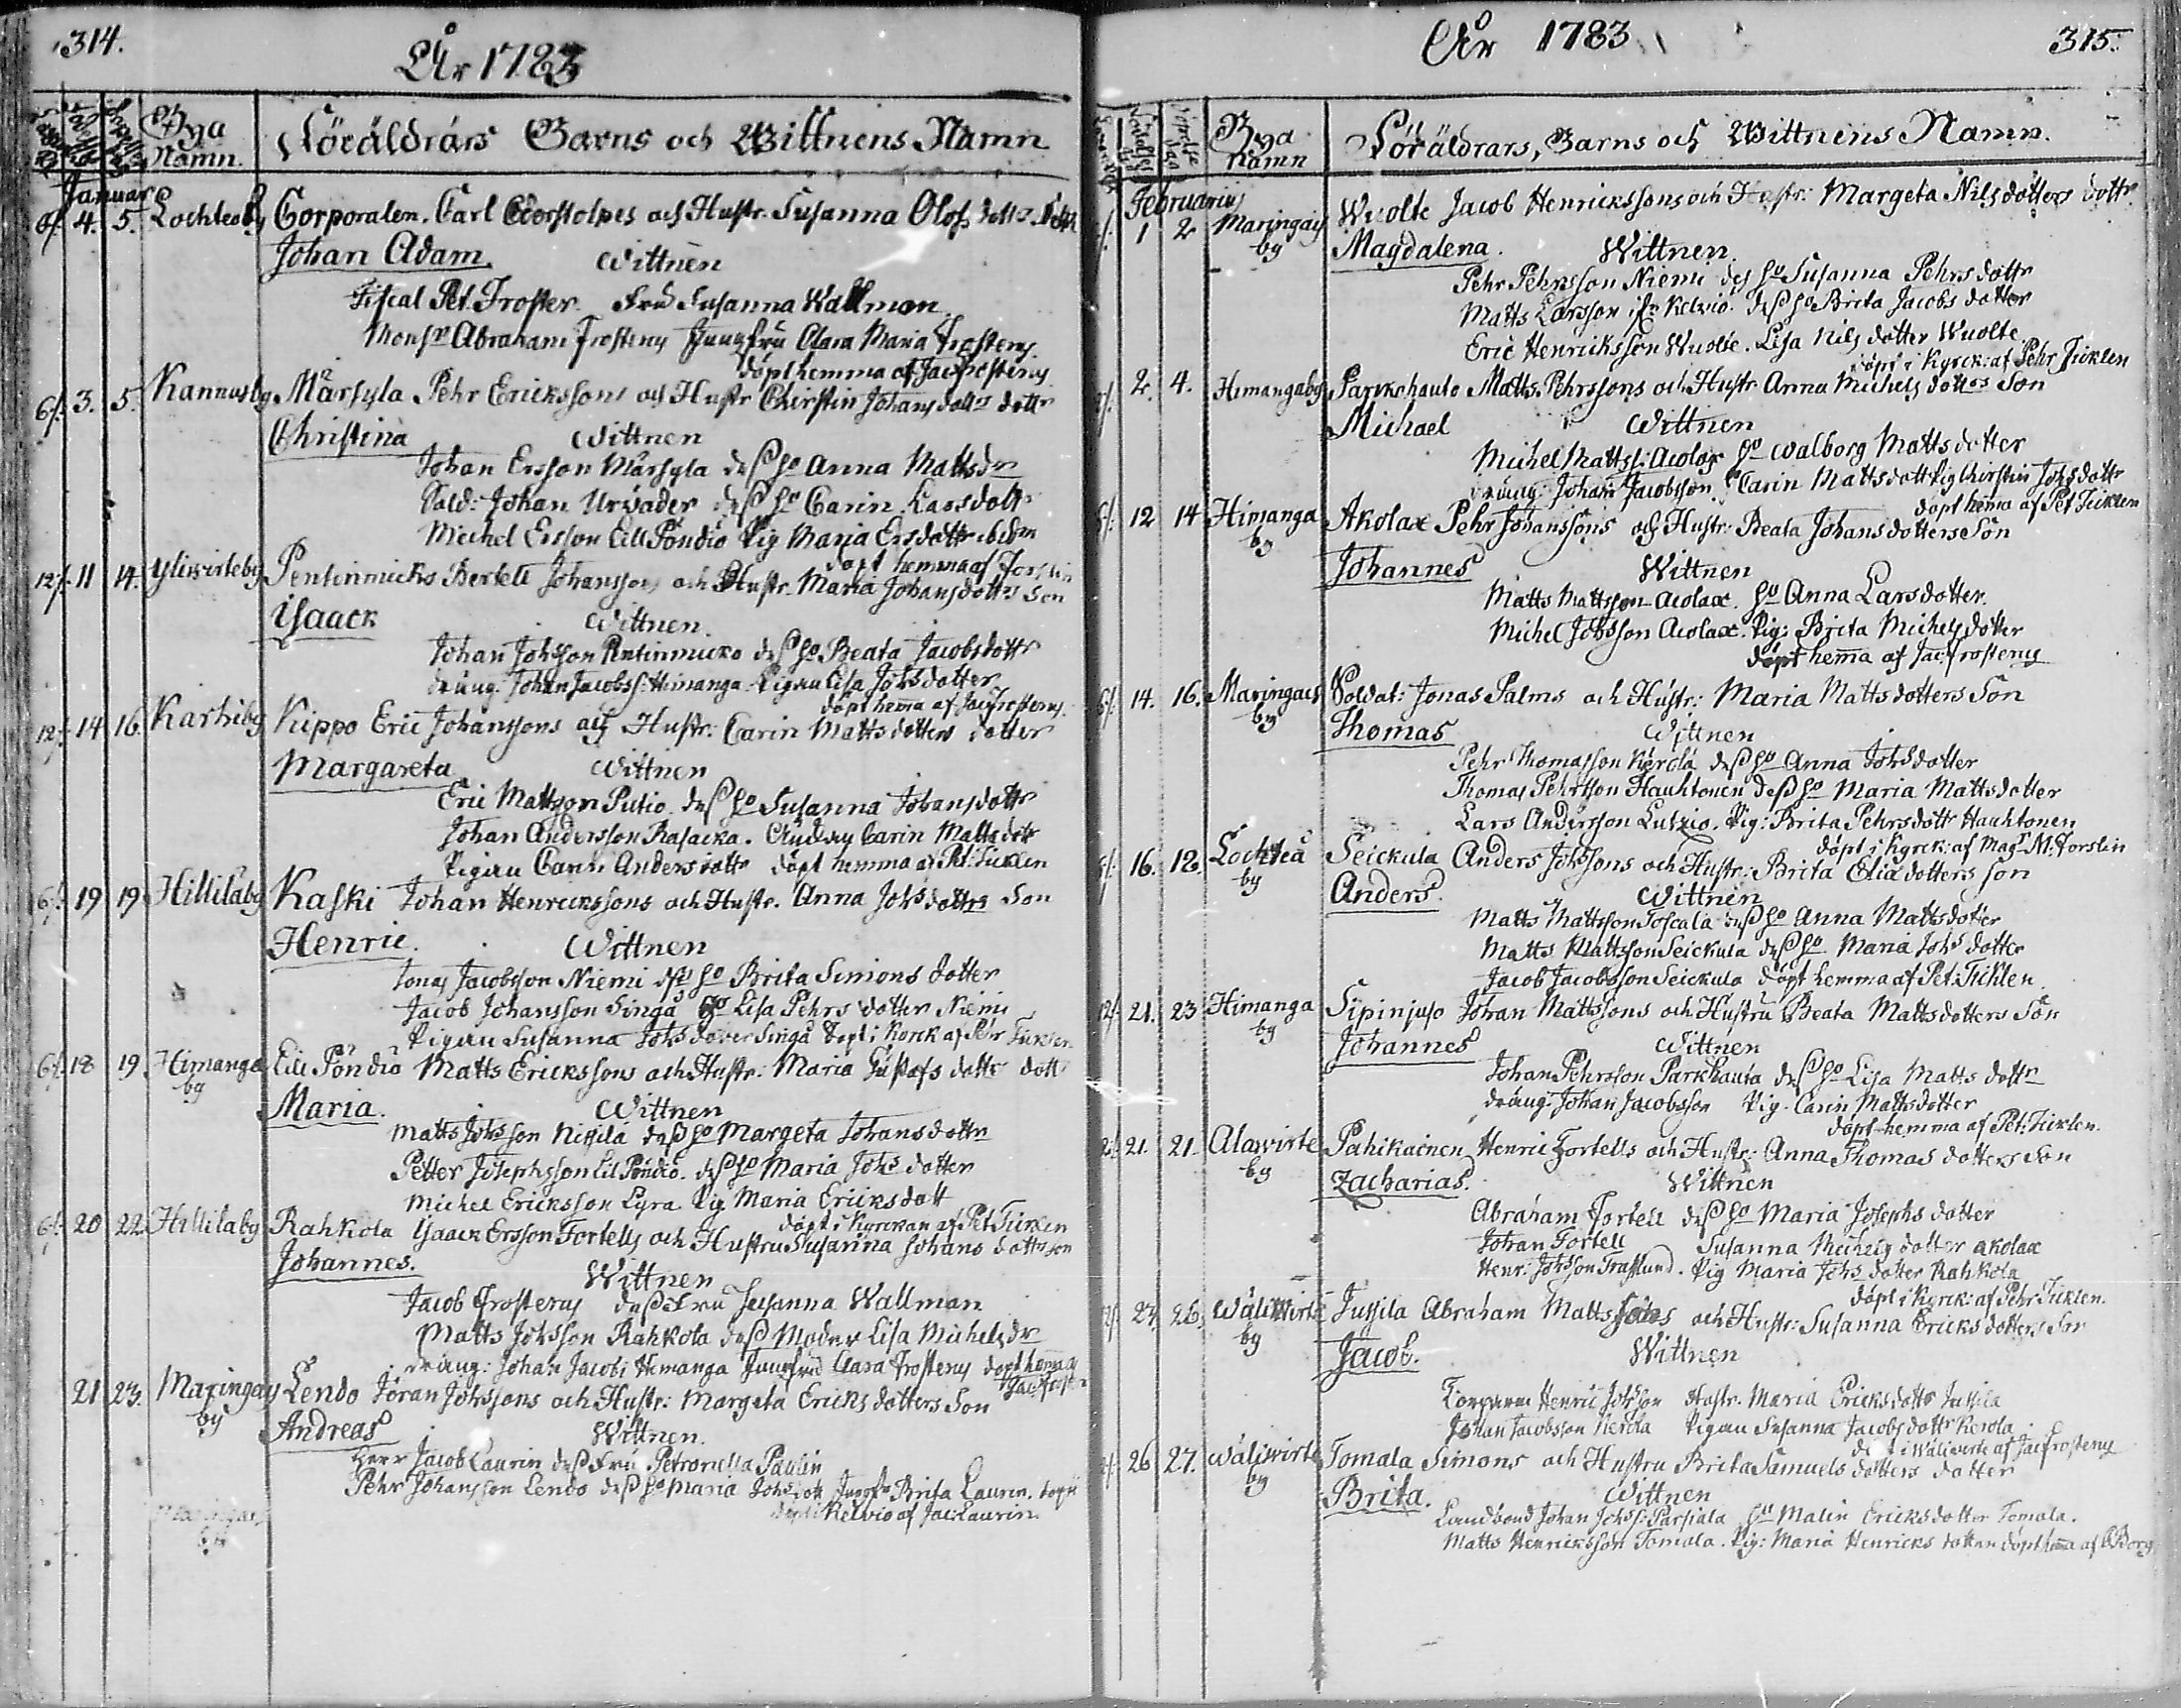 314.
År 1783
Bya Namn.
Föräldrars Barns och Wittnens Namn
Januar
4. 5. Lochteby Corporalen Carl Corstolpes och Hustr. Susanna Olofs dotters Son
Johan Adam. Wittnen
Fiscal Pet. Froster. Fru Susanna Wallman
Monsr Abraham Frosterus Jungfru Clara Maria Frosterus.
döpt hemma af Jac Frosterus
6/. 3. 5. Kannusby Märsyla Pehr Erickssons och Hustr Chirstin Johans dotters dotter
Christina Wittnen
Johan Ersson Märsyla dess ho Anna Mattsdr
Sold: Johan Urwäder dess ho Carin Larsdott
Michel Ersson Lill Pöndiö Pig Maria Ersdotter ibidm
döpt hemma af Forslin
12/. 11 14. Yliwirteby Pentinmicks Bertell Johanssons och Hustr. Maria Johansdotters Son
Isaack Wittnen.
Johan Johsson Pentinmicko dess ho Beata Jacobsdottr
dräng: Johan Jacobss: Himanga. Pigan Lisa Johsdotter
döpt hem̄a af Jac Frosterus.
12/. 14 16. Karhiby Kippo Eric Johanssons och Hustr: Carin Mattsdotters dotter
Margareta Wittnen
Eric Mattsson Putio dess ho Susanna Johansdottr
Johan Andersson Rasacka. Carin Mattsdotr
Pigan Carin Andersdottr döpt hemma af Pet: Ticklen
6/. 19 19 Hillilaby Kaski Johan Henrickssons och Hustr. Anna Johsdotters Son
Henric. Wittnen
Jonas Jacobsson Niemi dess ho Brita Simons dotter
Jacob Johansson Singå ho Lisa Pehrs dotter Niemi
Pigan Susanna Johsdotter Singå döpt i Kyrck af Pehr Ticklen
6/. 18 19. Himanga by Lill Pöndiö Matts Erickssons och Hustr: Maria Gustafs dottr dottr
Maria. Wittnen
Matts Johsson Kissilä dess ho Margeta Johansdottr
Petter Josephsson Lil Pöndiö. dess ho Maria Johs dotter
Michel Ericksson Lyra Pig Maria Ericksdott
döpt i Kyrckan af Pet Ticklen
6/. 20 22 Hillilaby Rahkola Isaack Ersson Fortells och Hustru Susanna Johans dotters son
Johannes. Wittnen
Jacob Frosterus dess Fru Susanna Wallman
Matts Johsson Rahkola dess Moder Lisa Michelsdr
dräng: Johan Jacobs Himanga Jungfru Clara Frosterus döpt hemma
Jac Froster
21 23. Maringais by Lendo Jöran Johssons och Hustr: Margeta Ericks dotters Son
Andreas Wittnen.
Herr Jacob Laurin dess Fru Petronella Paulin
Pehr Johansson Lendo dess ho Maria Johsdott Jungfr Brita Laurin.
döpt i Kelvio af Jac: Laurin.
Maringais by
År 1783
315.
Bya Namn
Föräldrars, Barns och Wittnens Namn.
Februarius
1 2 Maringais by Wuolte Jacob Henrickssons och Hustr: Margeta Nils dotters dottr.
Magdalena. Wittnen.
Pehr Pehrsson Niemi dess ho Susanna Pehrs dottr
Matts Larsson fr Kelvio. dess ho Brita Jacobs dotter
Eric Henricksson Wuolte. Lisa Nils dotter Wuolte
döpt i Kyrck: af Pehr Ticklen
2. 4. Himangaby Parckhauto Matts Pehrssons och Hustr Anna Michels dotters Son
Michael Wittnen
Michel Mattss: Acolax ho Walborg Matts dotter
dräng: Johan Jacobsson, Carin Mattsdott Pig Chirstin Johsdottr
döpt hem̄a af Pet Ticklen
12 14 Himanga by Akolax Pehr Johanssons och Hustr: Beata Johans dotters Son
Johannes Wittnen
Matts Mattsson Acolax. ho Anna Larsdotter.
Michel Johsson Acolax. Pig: Brita Michels dotter
döpt hem̄a af Jac: Frosterus
14. 16. Maringais by Soldat: Jonas Palms och Hustr: Maria Matts dotters Son
Thomas Wittnen
Pehr Thomasson Kerola dess ho Anna Johsdotter
Thomas Pehrsson Hauhtonen dess ho Maria Mattsdotter
Lars Andersson Lutzio. Pig: Brita Pehrsdottr Hauhtonen
döpt i Kyrck: af Magr M. Forslin
16. 18. Lochteå by Seickula Anders Johssons och Hustr: Brita Elia dotters son
Anders. Wittnen
Matts Mattsson Toscala dess ho Anna Mattsdotter
Matts Mattsson Seickula dess ho Maria Johs dotter
Jacob Jacobsson Seickula döpt hemma af Pet: Ticklen.
21. 23 Himanga by Sipinjuso Johan Mattssons och Hustru Beata Matts dotters Son
Johannes Wittnen
Johan Pehrsson Parkhauta dess ho Lisa Matts dottr
dräng Johan Jacobsson Pig. Carin Mattsdotter
döpt hemma af Pet: Ticklen.
21. 21. Alawirte by Pahikainen Henric Fortells och Hustr: Anna Thomas dotters Son
Zacharias. Wittnen
Abraham Fortell dess ho Maria Josephs dotter
Johan Fortell Susanna Michels dotter Akolax
Henr: Johsson Fraslund. Pig Maria Johs dotter Rahkola
döpt i Kyrck: af Pehr Ticklen.
24. 26. Wäliwirte by Jussila Abraham Mattssons och Hustr: Susanna Ericks dotters Son
Jacob. Wittnen
Henric Johsson Hustr. Maria Ericksdottr Jussila
Johan Jacobsson Kerola Pigan Susanna Jacobsdottr Kerola
döpt i Wäliwirte af Jac Frosterus
26 27. Wäliwirte by Tomala Simons och Hustru Brita Samuels dotters dotter
Brita. Wittnen
Landbond Johan Johss: Parsiala ho Malin Ericksdotter Tomala.
Matts Henricksson Tomala. Pig: Maria Henricks dotter döpt hem̄a af Borg